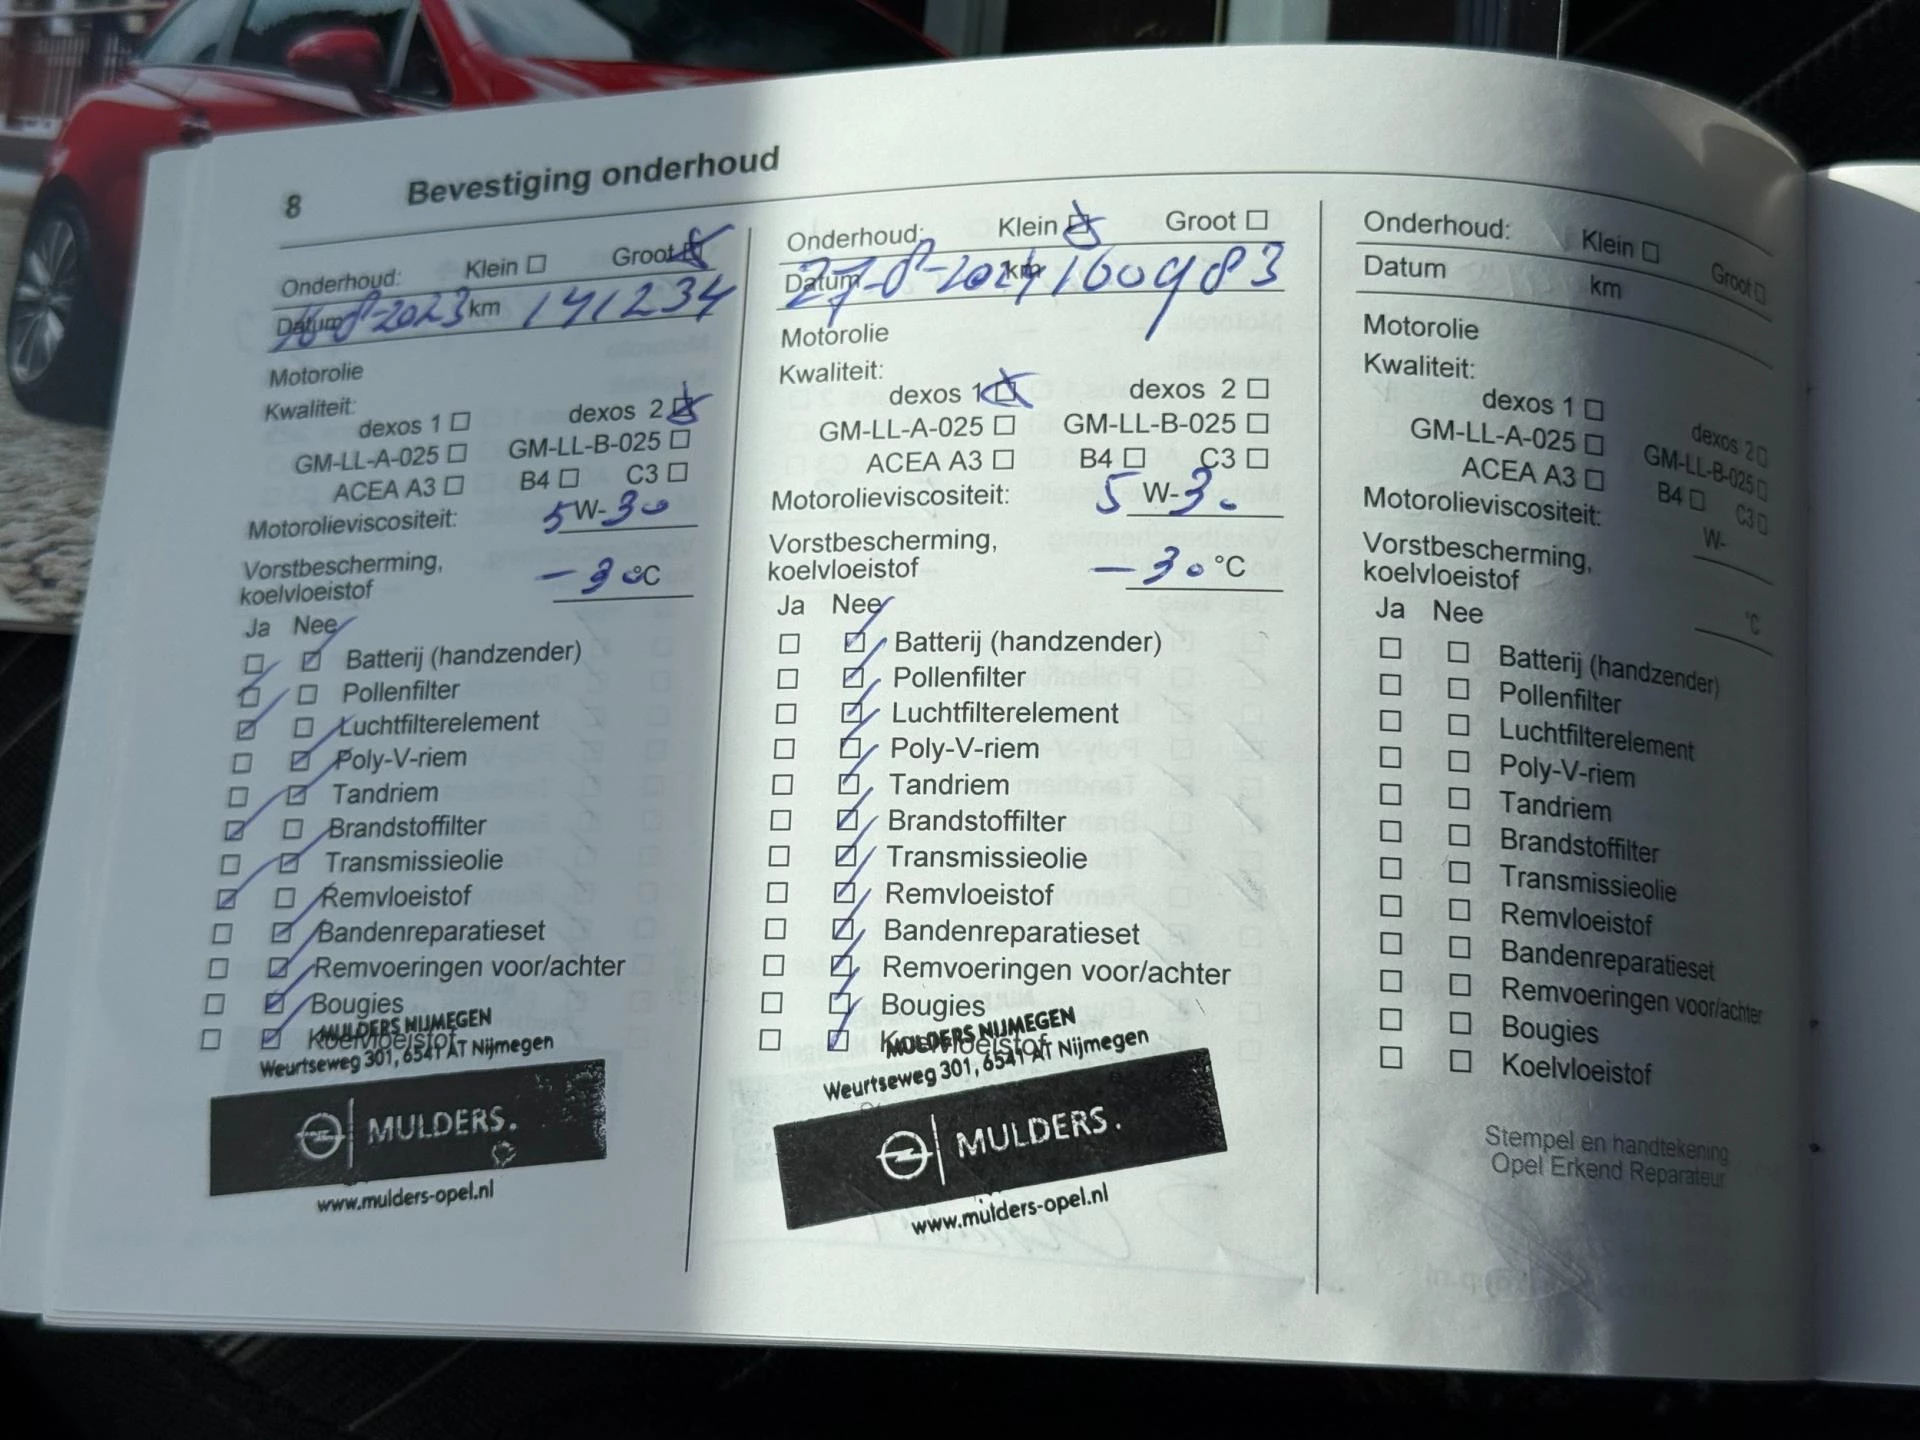 8 Bevestiging onderhoud
Onderhoud: Klein Groot
Datum 16-8-2023 km 141234
Motorolie
Kwaliteit:
dexos 1 dexos 2
GM-LL-A-025 GM-LL-B-025
ACEA A3 B4 C3
Motorolieviscositeit: 5 W-30
Vorstbescherming,
koelvloeistof -30 °C
Ja Nee
Batterij (handzender)
Pollenfilter
Luchtfilterelement
Poly-V-riem
Tandriem
Brandstoffilter
Transmissieolie
Remvloeistof
Bandenreparatieset
Remvoeringen voor/achter
Bougies
Koelvloeistof
MULDERS NIJMEGEN
Weurtseweg 301, 6541 AT Nijmegen
MULDERS.
www.mulders-opel.nl
Onderhoud: Klein Groot
Datum 27-8-2024 km 160983
Motorolie
Kwaliteit:
dexos 1 dexos 2
GM-LL-A-025 GM-LL-B-025
ACEA A3 B4 C3
Motorolieviscositeit: 5 W-30
Vorstbescherming,
koelvloeistof -30 °C
Ja Nee
Batterij (handzender)
Pollenfilter
Luchtfilterelement
Poly-V-riem
Tandriem
Brandstoffilter
Transmissieolie
Remvloeistof
Bandenreparatieset
Remvoeringen voor/achter
Bougies
Koelvloeistof
MULDERS NIJMEGEN
Weurtseweg 301, 6541 AT Nijmegen
MULDERS.
www.mulders-opel.nl
Onderhoud: Klein Groot
Datum km
Motorolie
Kwaliteit:
dexos 1 dexos 2
GM-LL-A-025 GM-LL-B-025
ACEA A3 B4 C3
Motorolieviscositeit: W-
Vorstbescherming,
koelvloeistof °C
Ja Nee
Batterij (handzender)
Pollenfilter
Luchtfilterelement
Poly-V-riem
Tandriem
Brandstoffilter
Transmissieolie
Remvloeistof
Bandenreparatieset
Remvoeringen voor/achter
Bougies
Koelvloeistof
Stempel en handtekening
Opel Erkend Reparateur